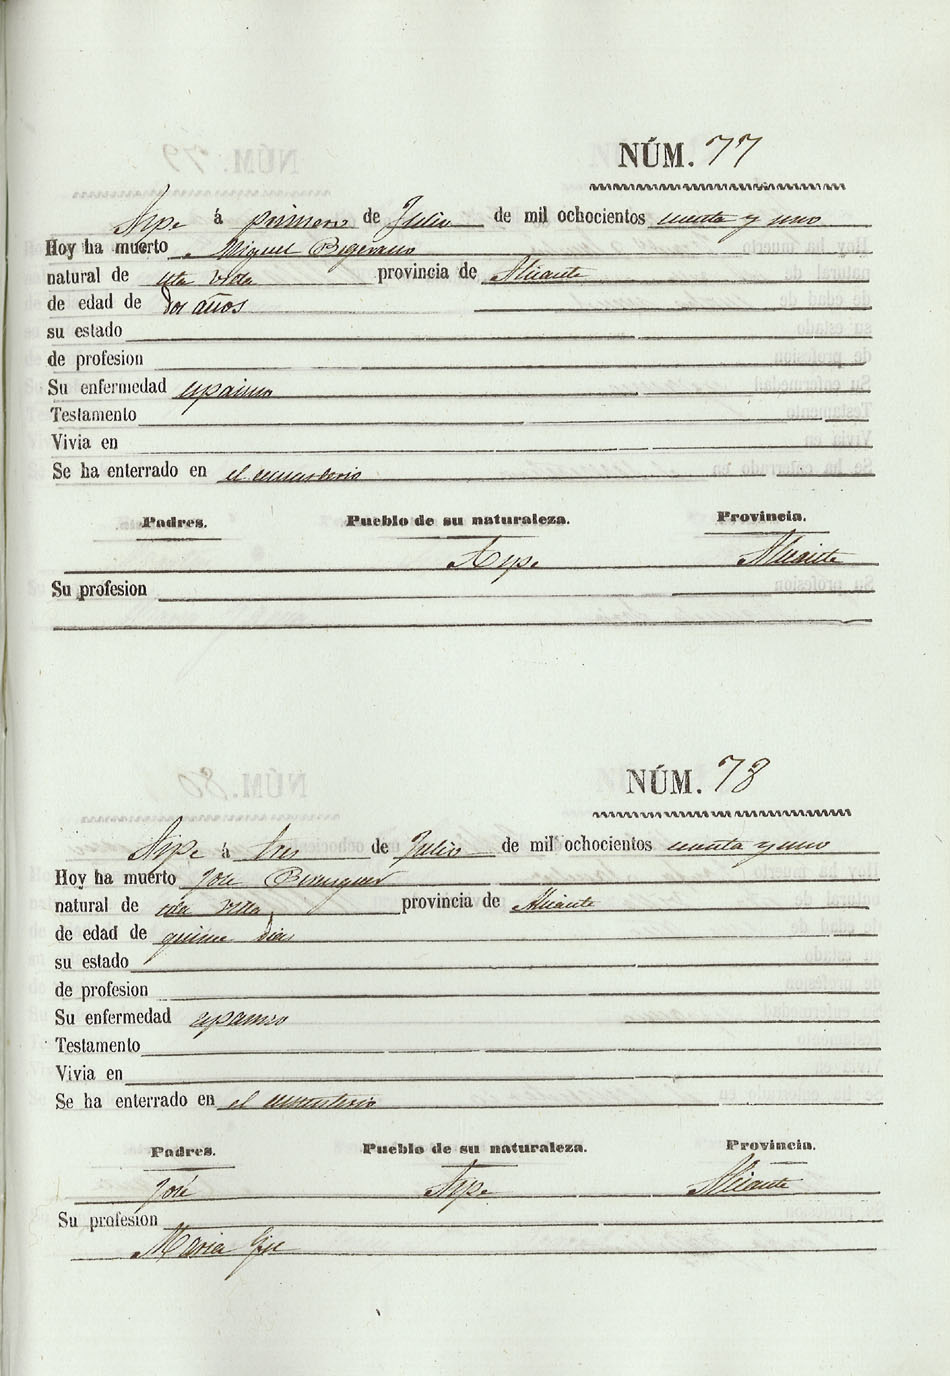 NÚM. 77
Aspe á primero de Julio de mil ochocientos cuenta y uno
Hoy ha muerto Miguel Bigerano
natural de esta villa provincia de Alicante
de edad de dos años
su estado
de profesion
Su enfermedad espasmo
Testamento
Vivia en
Se ha enterrado en el cementerio
Padres. Pueblo de su naturaleza. Provincia.
Aspe Alicante
Su profesion
NÚM. 78
Aspe á tres de Julio de mil ochocientos cuenta y uno
Hoy ha muerto José Berenguer
natural de esta villa provincia de Alicante
de edad de quince dias
su estado
de profesion
Su enfermedad espasmo
Testamento
Vivia en
Se ha enterrado en el cementerio
Padres. Pueblo de su naturaleza. Provincia.
José Aspe Alicante
Su profesion
Maria